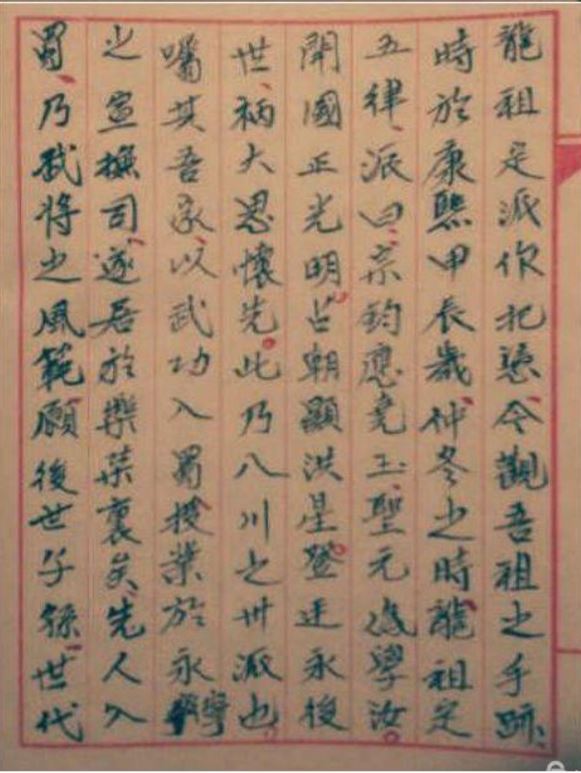 龍祖定派作把憑、今觀吾祖之手跡、
時於康熙甲辰歲、仲冬之時、龍祖定
五律、派曰、宗鈞應堯玉、聖元後學汝。
開國正光明。占朝顯洪星。登廷永後
世、柄大恩懷先。此乃入川之卅派也。
囑其吾家、以武功入蜀、授業於永寧
之宣撫司、遂居於樂柒裏矣、先人入
蜀、乃武將之風範、願後世子孫、世代